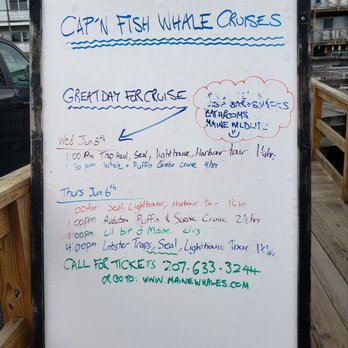 CAP'N FISH WHALE CRUISES
GREAT DAY FOR CRUISE
BATHROOMS
MAINE
Wed Jun 5th
1:00 Pm Trap Haul, Seal, lighthouse, Harbour tour 1½hr.
1:30 pm Whale + Puffin Combo Cruise 4hr
Thurs Jun 6th
:00Am Seal, Lighthouse, Harbour 1½hr
1:00pm Audubon Puffin & Scenic Cruise 2½hr
1:00pm Lil bit o' Maine
4:00pm Lobster Traps, Seal, Lighthouse Tour 1½hr
CALL FOR TICKETS 207-633-3244
OR GO TO: WWW.MAINEWHALES.COM